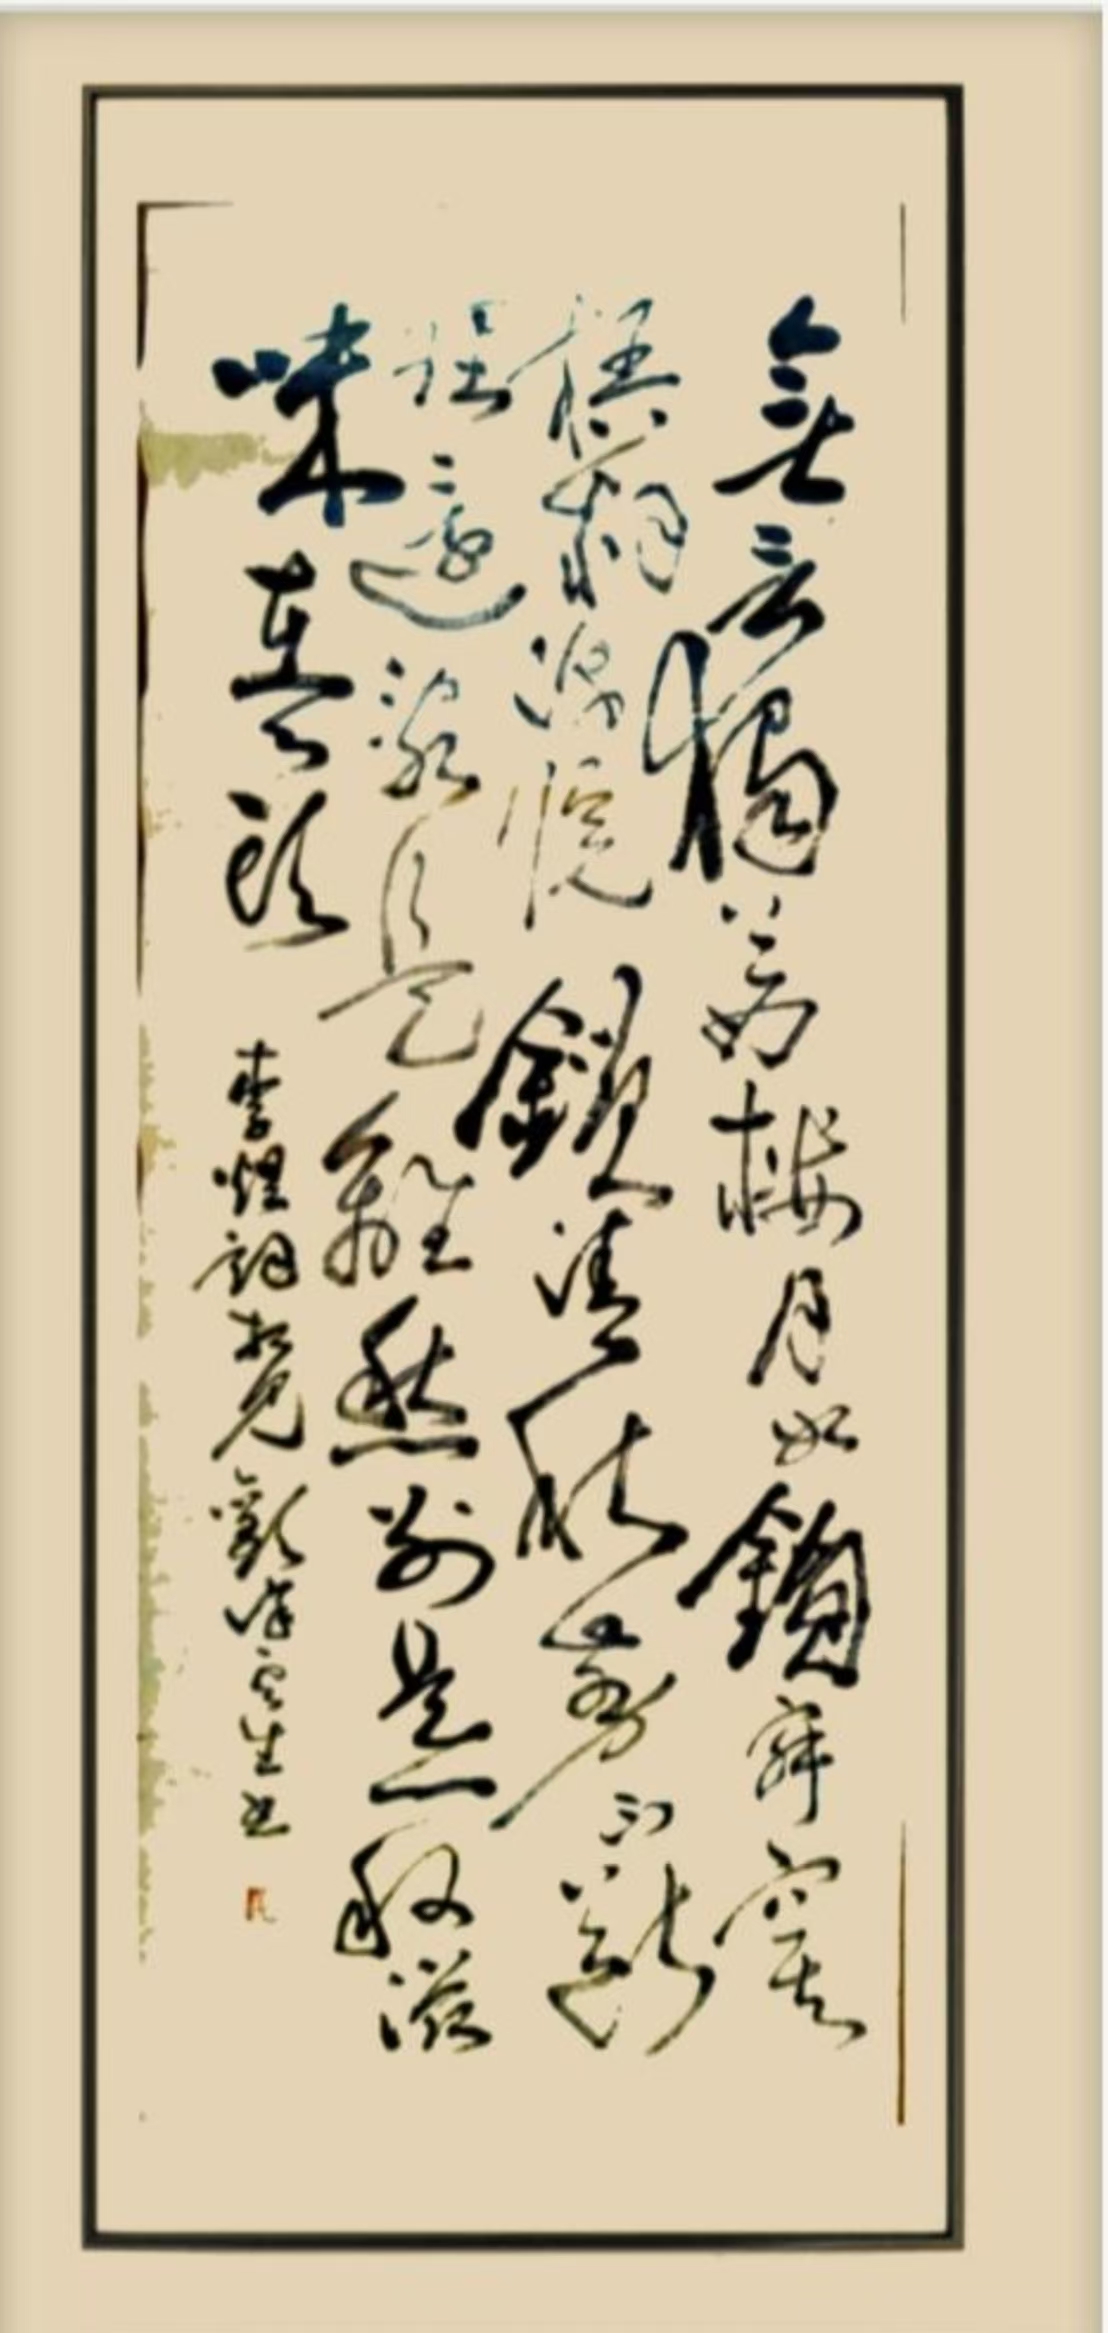 無言獨上西樓月如鉤寂寞
梧桐深院鎖清秋剪不斷
理還亂是離愁別是一般滋
味在心頭
李煜詞相見歡生书